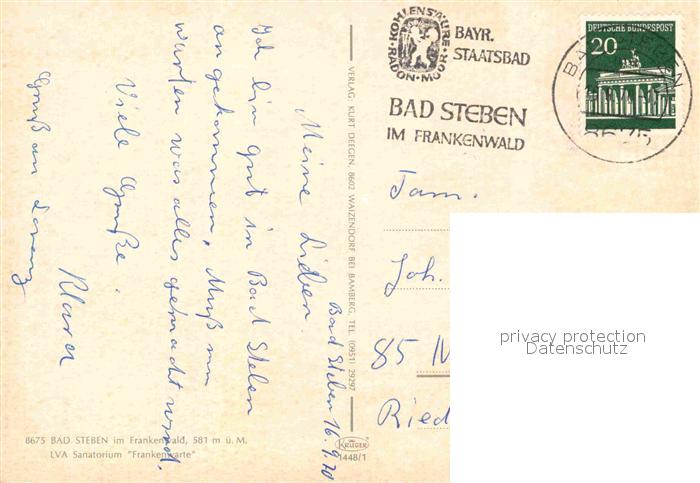 Bad Steben 16.9.70
Meine Lieben.
Ich bin gut in Bad Steben
angekommen, Muß nun
warten was alles gemacht wird.
Viele Grüße.
Klara
Gruß an Lorenz
8675 BAD STEBEN im Frankenwald, 581 m ü. M.
LVA Sanatorium "Frankenwarte"
VERLAG: KURT DEEGEN, 8602 WAIZENDORF BEI BAMBERG, TEL. (0951) 29297
KRÜGER
1448/1
KOHLENSÄURE·MOOR·RADON·
BAYR.
STAATSBAD
BAD STEBEN
IM FRANKENWALD
DEUTSCHE BUNDESPOST
20
BAD STEBEN
8675
Fam.
Joh.
85 N
Ried
privacy protection
Datenschutz